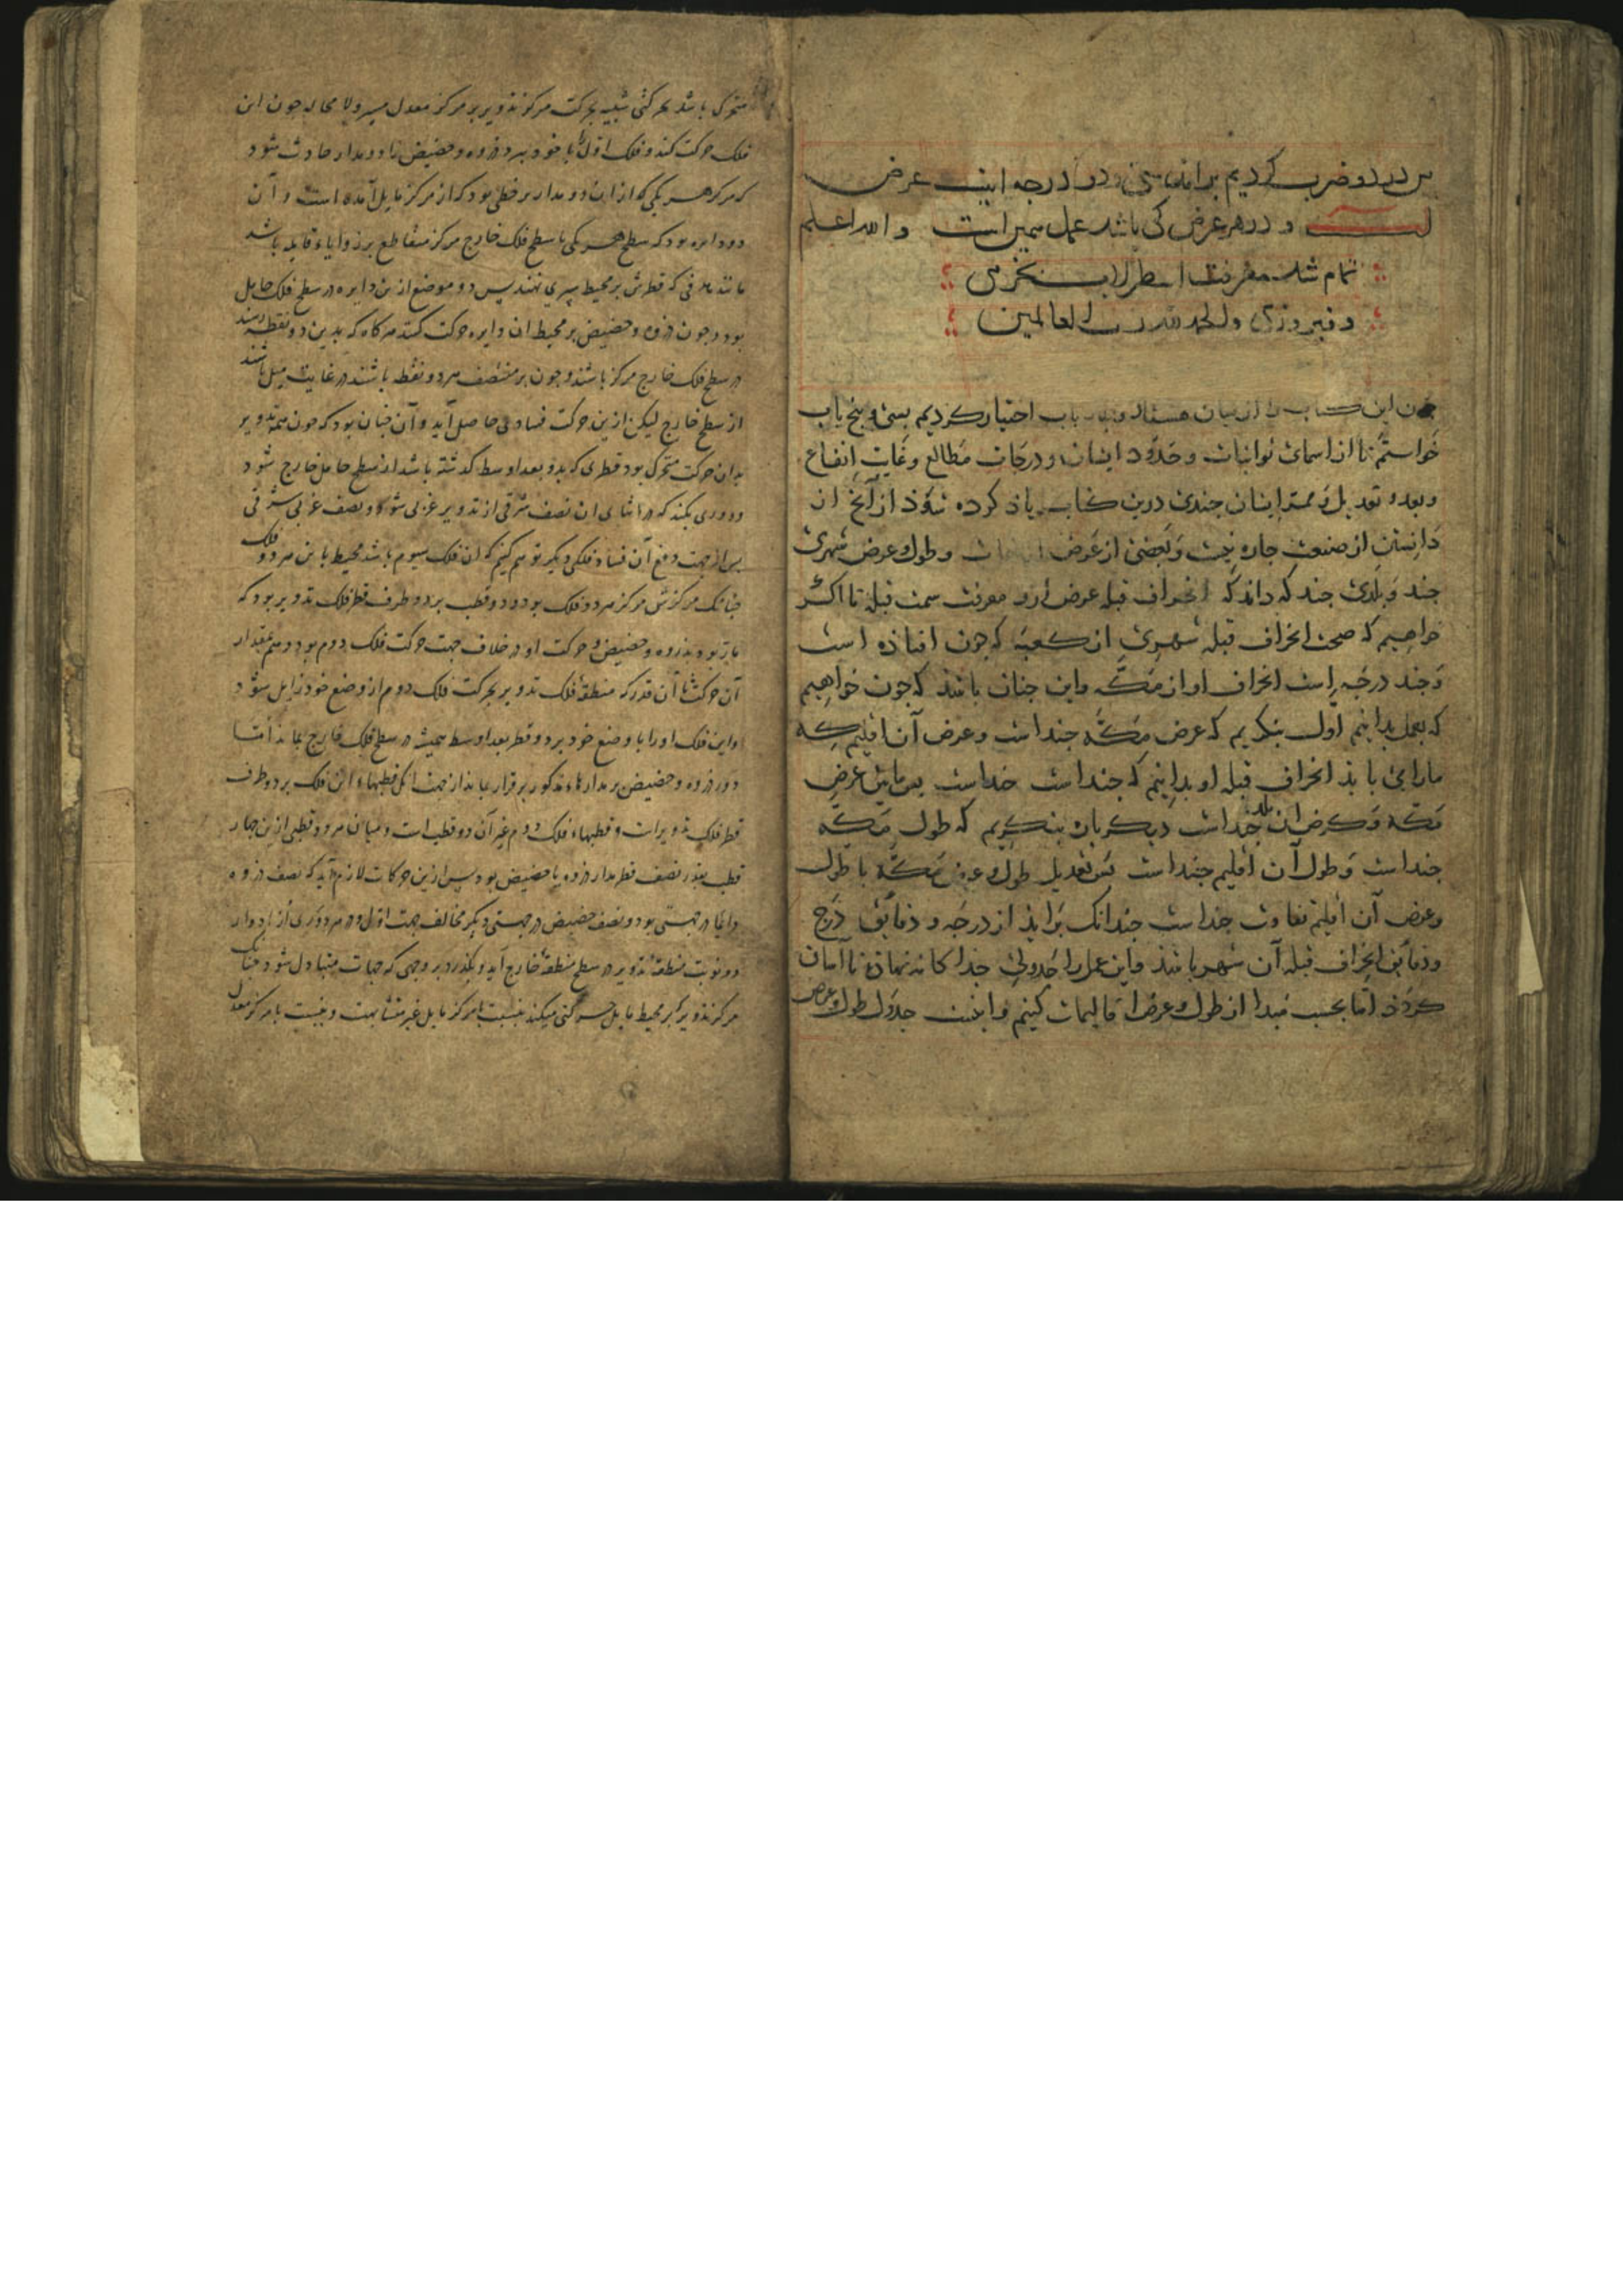 پس در دو ضرب کردیم برآمد سی و دو درجه اینست عرض
و در هر عرض کی باشد عمل همین است والله اعلم
تمام شد معرفت اسطرلاب بخرمی
و فیروزی والحمد لله رب العالمین
چون این کتاب را از میان باب اختیار کردیم بسی و پنج باب
خواستم تا از اسمای ثوابتات و حدود ایشان و درجات مطالع و غایت ارتفاع
و بعد و تعدیل و ممر ایشان چندی درین کتاب یاذ کرده شوذ از آنج از
دانستن از صنعت چاره نیست و بعضی از عرض و طول و عرض شهری
چند و بلدی چند که داند که انحراف قبله عرض ارو معرفت سمت قبله تا اکر
خواهیم که صحت انحراف قبله شهری از کعبه که چون افتاذه است
و چند درجه است انحراف او از مکه واین چنان باشذ که چون خواهیم
که بعمل بدانیم اول بنکریم که عرض مکه چند است و عرض آن اقلیم که
مارا می باید انحراف قبله او بدانیم که چند است چند است پس مابین عرض
مکه و عرض آن بلد چند است دیکر بار بنکریم که طول مکه
چند است و طول آن اقلیم چند است پس تعدیل طول و عرض مکه با طول
و عرض آن اقلیم تفاوت چند است چندانک برآیذ از درجه و دقائق درج
و دقائق انحراف قبله آن شهر باشذ واین عمل را جدولی جداکانه نهاده تا آسان
کردذ اما بحسب مبدا از طول و عرض اقالیمات کنیم و اینست جدول طول و عرض
متحرک باشد بحرکتی شبیه بحرکت مرکز تدویر بر مرکز معدل مسیر و لا محاله چون این
فلک حرکت کند و فلک اول را با خود ببرد ذروه و حضیض را دو مدار حادث شود
که مرکز هر یکی از این دو مدار بر خطی بود که از مرکز مایل آمده است و آن
دو دایره بود که سطح هر یکی با سطح فلک خارج مرکز متقاطع بر زوایاء قایمه باشد
مانند دفی که قطرش بر محیط سپری نهند پس دو موضع ازین دایره در سطح فلک حامل
بود و چون ذروه و حضیض بر محیط آن دایره حرکت کند هرکاه که بدین دو نقطه رسند
در سطح فلک خارج مرکز باشند و چون بر منتصف هر دو نقطه باشند در غایت میل باشند
از سطح خارج لیکن ازین حرکت فسادی حاصل آید و آن چنان بود که چون همه تدویر
بدان حرکت متحرک بود قطری که بدو بعد اوسط کذشته باشد از سطح حامل خارج شود
و دوری بکند که در اثنای آن نصف شرقی از تدویر غربی شود و نصف غربی شرقی
پس از جهت دفع آن فساد فلکی دیکر توهم کنیم که آن فلک سیوم باشد محیط باین هر دو فلک
چنانک مرکزش مرکز هر دو فلک بود و دو قطب بر دو طرف قطر فلک تدویر بود که
مارّ بود بذروه و حضیض و حرکت او در خلاف جهت حرکت فلک دوم بود و هم بمقدار
آن حرکت تا آن قدر که منطقه فلک تدویر بحرکت فلک دوم از وضع خود زایل شود
و این فلک او را با وضع خود برد و قطر بعد اوسط همیشه در سطح فلک خارج بماند اما
دور ذروه و حضیض بر مدارهاء مذکور برقرار بماند از جهت آنک قطبهاء این فلک بر دو طرف
قطر فلک تدویر است و قطبهاء فلک دوم غیر آن دو قطب است و میان هر دو قطبی ازین چهار
قطب بقدر نصف قطر مدار ذروه یا حضیض بود پس ازین حرکات لازم آید که نصف ذروه
دایما در جهتی بود و نصف حضیض در جهتی دیکر مخالف جهت اول و در هر دوری از ادوار
دو نوبت منطقه تدویر در سطح منطقه خارج آید و بکذرد بر وجهی که جهات متبادل شود چنانک
مرکز تدویر که بر محیط مایل حرکتی میکند بنسبت با مرکز مایل غیر متشابهت و بنسبت با مرکز معدل